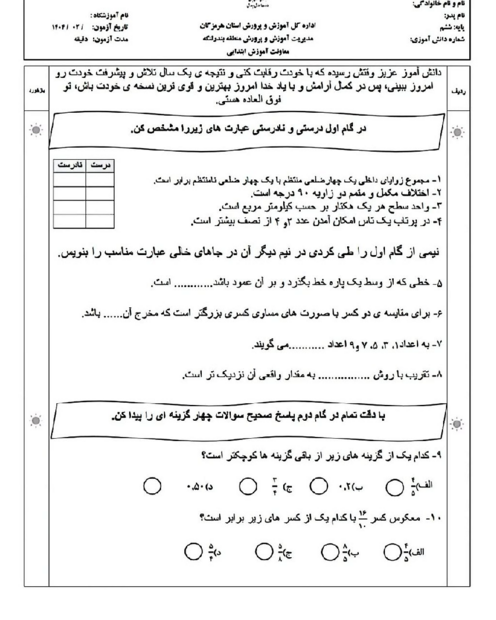 نام و نام خانوادگی:
نام پدر:
پایه: ششم
شماره دانش آموزی:
اداره کل آموزش و پرورش استان هرمزگان
مدیریت آموزش و پرورش منطقه بندرلنگه
معاونت آموزش ابتدایی
نام آموزشگاه:
تاریخ آزمون: / ۰۳ / ۱۴۰۴
مدت آزمون: دقیقه
ردیف
دانش آموز عزیز وقتش رسیده که با خودت رقابت کنی و نتیجه ی یک سال تلاش و پیشرفت خودت رو
امروز ببینی، پس در کمال آرامش و با یاد خدا امروز بهترین و قوی ترین نسخه ی خودت باش، تو
فوق العاده هستی.
در گام اول درستی و نادرستی عبارت های زیررا مشخص کن.
درست نادرست
۱- مجموع زوایای داخلی یک چهارضلعی منتظم با یک چهار ضلعی نامنتظم برابر است.
۲- اختلاف مکمل و متمم دو زاویه ۹۰ درجه است.
۳- واحد سطح هر یک هکتار بر حسب کیلومتر مربع است.
۴- در پرتاب یک تاس امکان آمدن عدد ۳و ۴ از نصف بیشتر است.
نیمی از گام اول را طی کردی در نیم دیگر آن در جاهای خالی عبارت مناسب را بنویس.
۵- خطی که از وسط یک پاره خط بگذرد و بر آن عمود باشد............ است.
۶- برای مقایسه ی دو کسر با صورت های مساوی کسری بزرگتر است که مخرج آن...... باشد.
۷- به اعداد۱، ۳، ۵، ۷ و۹ اعداد ...........می گویند.
۸- تقریب با روش ............... به مقدار واقعی آن نزدیک تر است.
با دقت تمام در گام دوم پاسخ صحیح سوالات چهار گزینه ای را پیدا کن.
۹- کدام یک از گزینه های زیر از باقی گزینه ها کوچکتر است؟
الف) ۴/۵ ب) ۰.۲ ج) ۳/۴ د) ۰.۵۰
۱۰- معکوس کسر ۱۶/۱۰ با کدام یک از کسر های زیر برابر است؟
الف) ۴/۵ ب) ۸/۵ ج) ۵/۸ د) ۵/۴